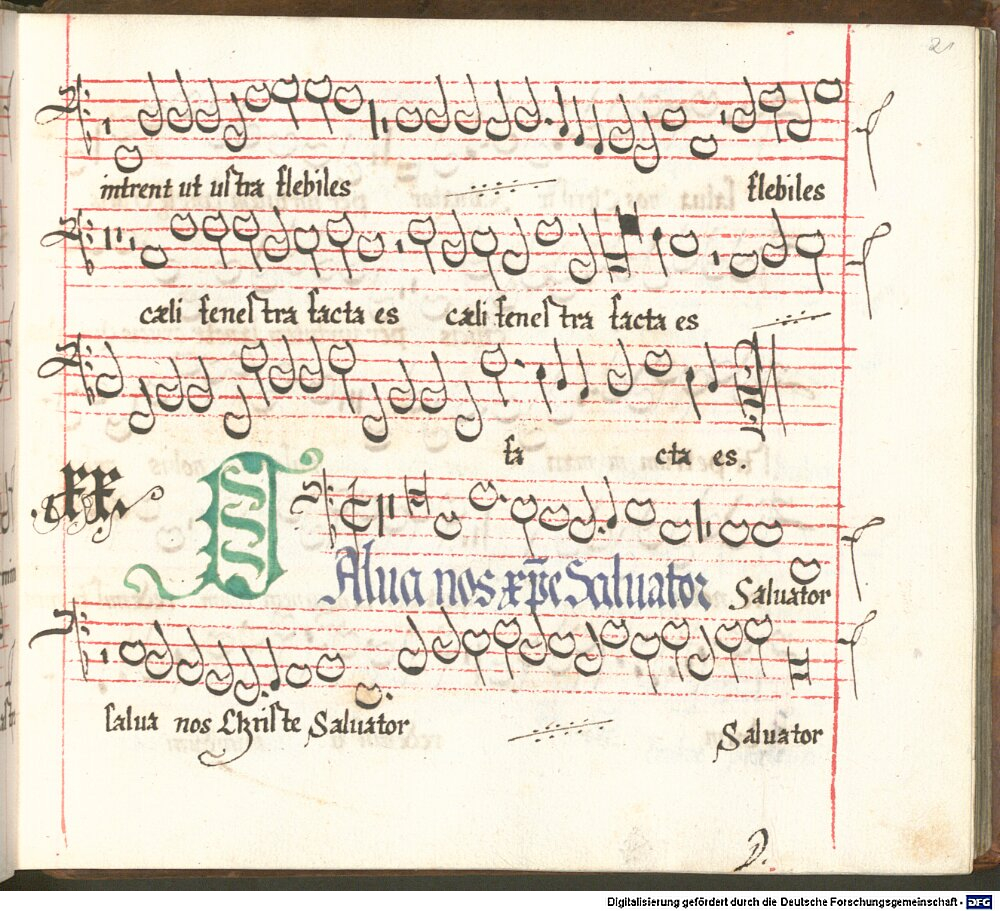 21
intrent ut astra flebiles flebiles
cæli fenestra facta es cæli fenestra facta es
fa cta es.
.XX.
SAlua nos xp̄e Saluator Saluator
salua nos Christe Saluator Saluator
D.
Digitalisierung gefördert durch die Deutsche Forschungsgemeinschaft - DFG